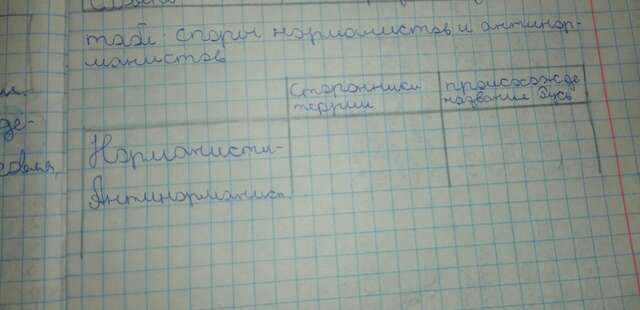 таб: споры норманистов и антинор-
манистов
Сторонники
теории
происхожде
название Русь
Норманисты-
Антинорманист.
де-